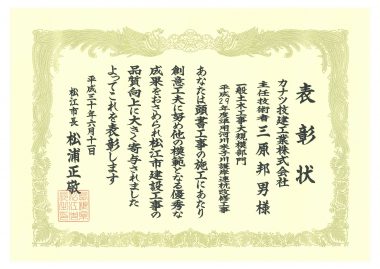 表彰状
カナツ技建工業株式会社
主任技術者 三原邦男様
一般土木工事大規模部門
平成29年度準用河川米子川護岸連杭改修工事
あなたは頭書工事の施工にあたり
創意工夫に努め他の模範となる優秀な
成果をおさめられ松江市建設工事の
品質向上に大きく寄与されました
よってこれを表彰します
平成三十年六月十一日
松江市長 松浦正敬